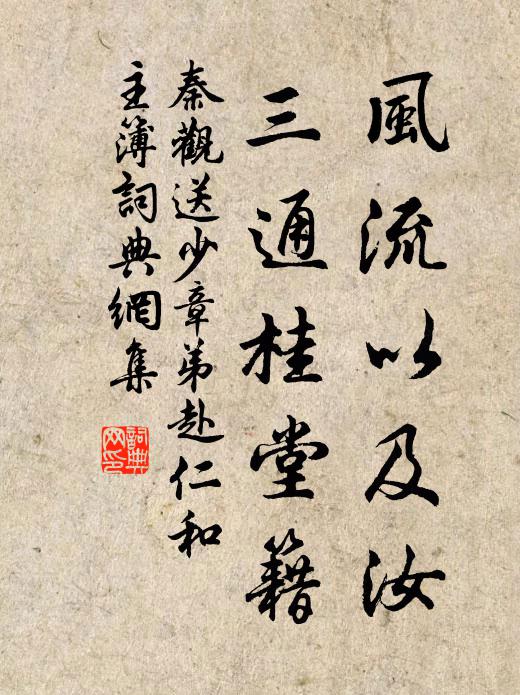 風流以及汝
三通桂堂籍
秦觀送少章弟赴仁和
主簿詞典網集
詞典
网印